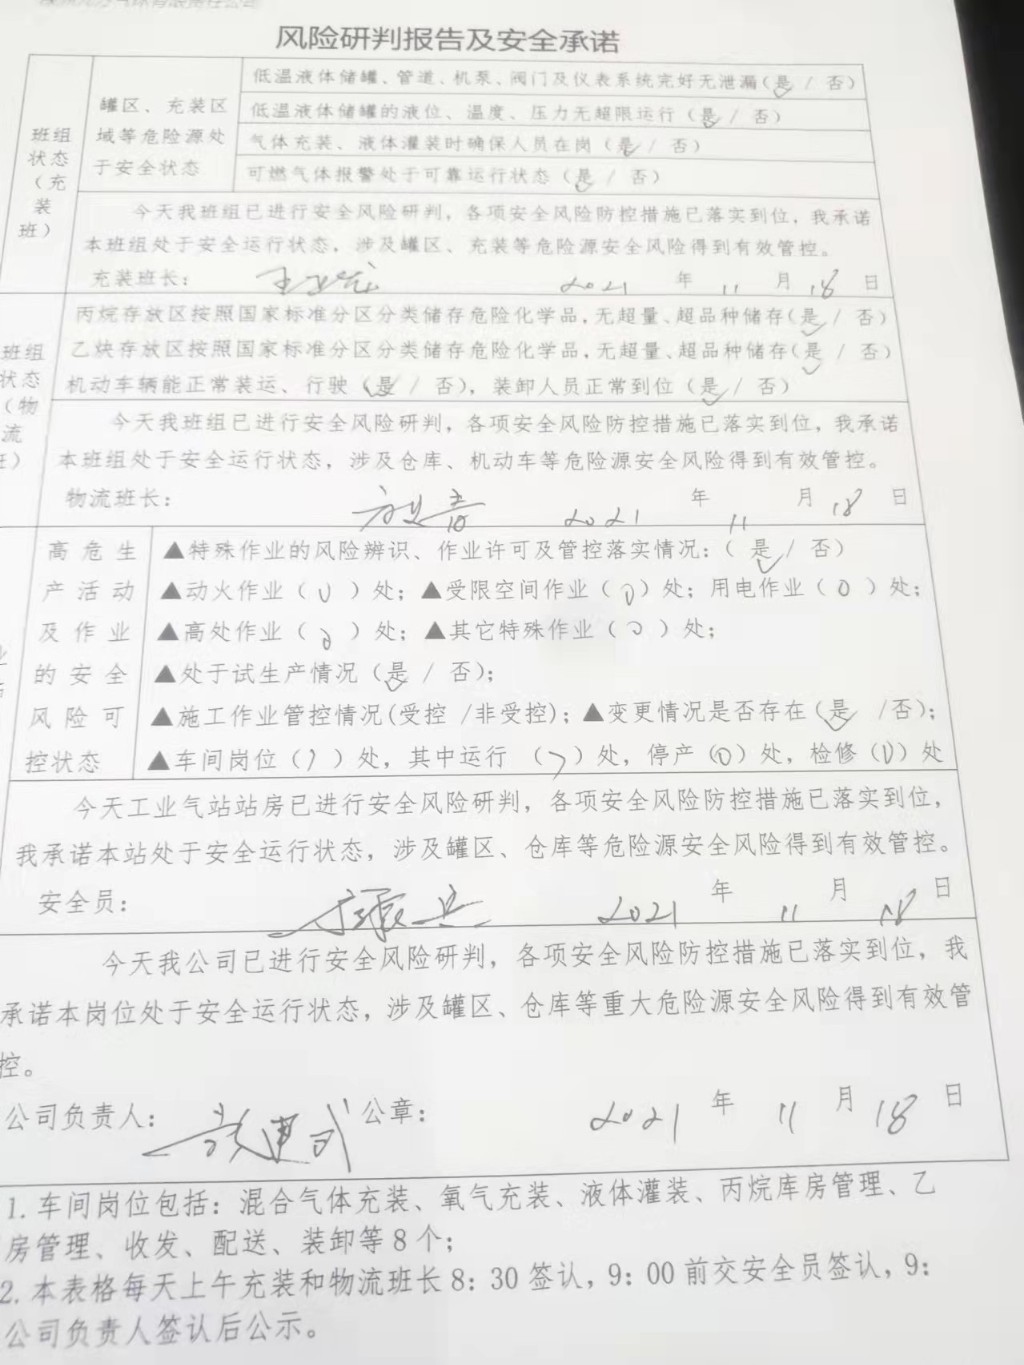 风险研判报告及安全承诺
班组状态（充装班）
罐区、充装区域等危险源处于安全状态
低温液体储罐、管道、机泵、阀门及仪表系统完好无泄漏（是 / 否）
低温液体储罐的液位、温度、压力无超限运行（是 / 否）
气体充装、液体灌装时确保人员在岗（是 / 否）
可燃气体报警处于可靠运行状态（是 / 否）
今天我班组已进行安全风险研判，各项安全风险防控措施已落实到位，我承诺
本班组处于安全运行状态，涉及罐区、充装等危险源安全风险得到有效管控。
充装班长： 2021 年 11 月 18 日
班组状态（物流班）
丙烷存放区按照国家标准分区分类储存危险化学品，无超量、超品种储存（是 / 否）
乙炔存放区按照国家标准分区分类储存危险化学品，无超量、超品种储存（是 / 否）
机动车辆能正常装运、行驶（是 / 否），装卸人员正常到位（是 / 否）
今天我班组已进行安全风险研判，各项安全风险防控措施已落实到位，我承诺
本班组处于安全运行状态，涉及仓库、机动车等危险源安全风险得到有效管控。
物流班长： 2021 年 11 月 18 日
高危生产活动及作业的安全风险可控状态
▲特殊作业的风险辨识、作业许可及管控落实情况：（ 是 / 否）
▲动火作业（ 0 ）处；▲受限空间作业（ 0 ）处；用电作业（ 0 ）处；
▲高处作业（ 0 ）处；▲其它特殊作业（ 0 ）处；
▲处于试生产情况（是 / 否）；
▲施工作业管控情况（受控 /非受控）；▲变更情况是否存在（是 /否）；
▲车间岗位（7）处，其中运行 （7）处，停产（0）处，检修（0）处
今天工业气站站房已进行安全风险研判，各项安全风险防控措施已落实到位，
我承诺本站处于安全运行状态，涉及罐区、仓库等危险源安全风险得到有效管控。
安全员： 2021 年 11 月 18 日
今天我公司已进行安全风险研判，各项安全风险防控措施已落实到位，我
承诺本岗位处于安全运行状态，涉及罐区、仓库等重大危险源安全风险得到有效管
控。
公司负责人： 公章： 2021 年 11 月 18 日
1. 车间岗位包括：混合气体充装、氧气充装、液体灌装、丙烷库房管理、乙
房管理、收发、配送、装卸等8个；
2. 本表格每天上午充装和物流班长8：30签认，9：00前交安全员签认，9：
公司负责人签认后公示。